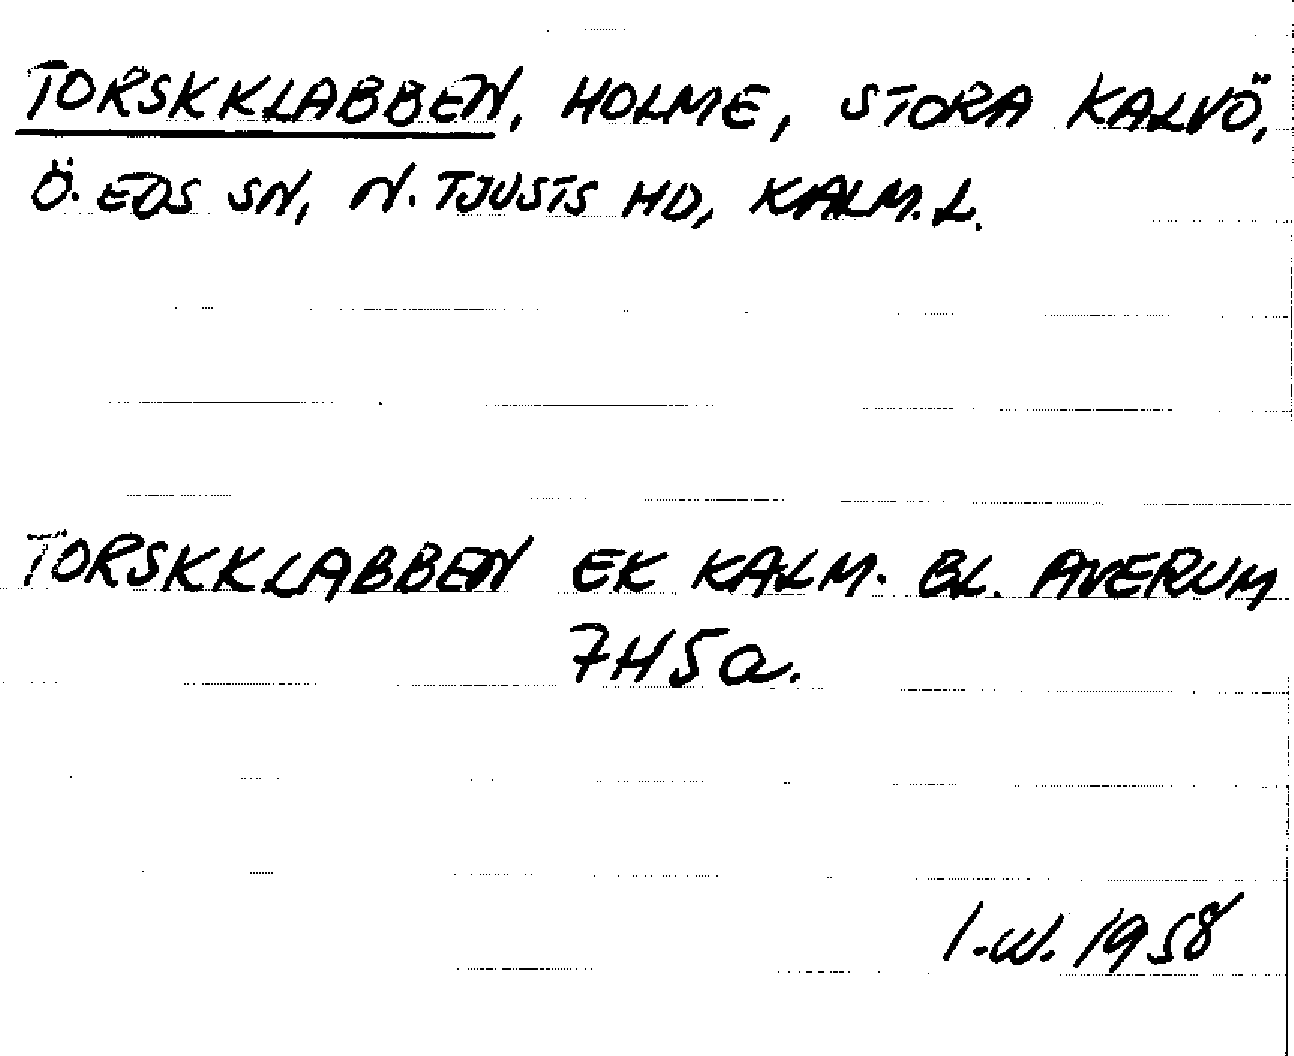 TORSKKLABBEN, HOLME, STORA KALVÖ,
Ö. EDS SN, N. TJUSTS HD, KALM. L.
TORSKKLABBEN EK KALM. BL. AVERUM
7H5a.
I.W. 1958